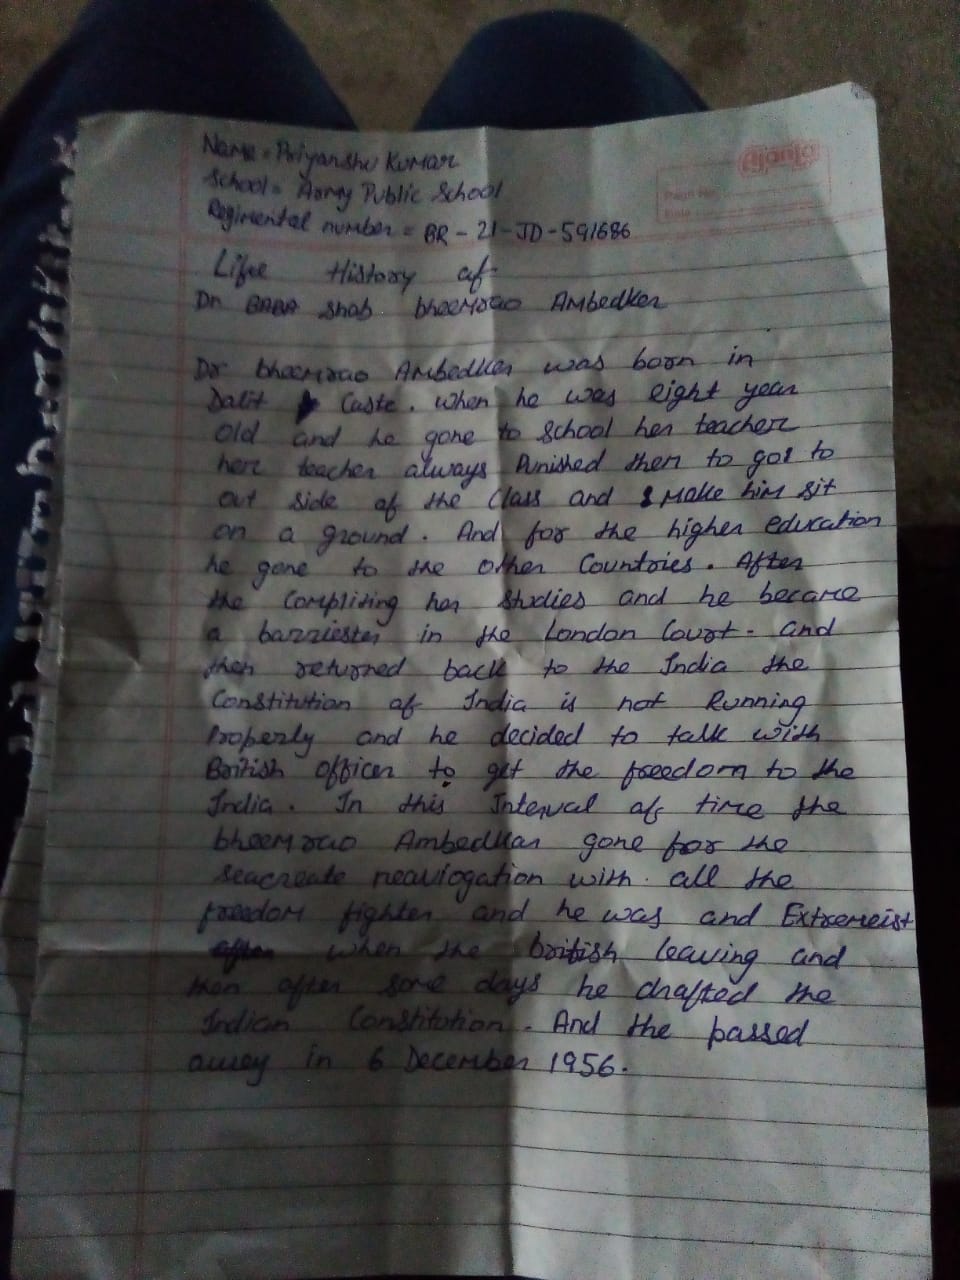 Ajanta
Page No.
Date
Name = Priyanshu Kumar
School = Army Public School
Regimental number = BR - 21 - JD - 591686
Life History of
Dr BABA Shab bheemrao Ambedker
Dr bheemrao Ambedker was born in
Dalit Caste. when he was eight year
old and he gone to school her teacher
here teacher always Punished them to got to
out side of the Class and make him sit
on a ground. And for the higher education
he gone to the other Countries. After
the Complizing her Studies and he became
a barziester in the London Court. and
then returned back to the India the
Constitution of India is not Running
Properly and he decided to talk with
British officer to get the freedom to the
India. In this Interval of time the
bheemrao Ambedkar gone for the
seacreate neaviogation with all the
freedom fighter and he was and Extremeist
when the british leaving and
then after some days he drafted the
Indian Constitution. And the passed
away in 6 December 1956.